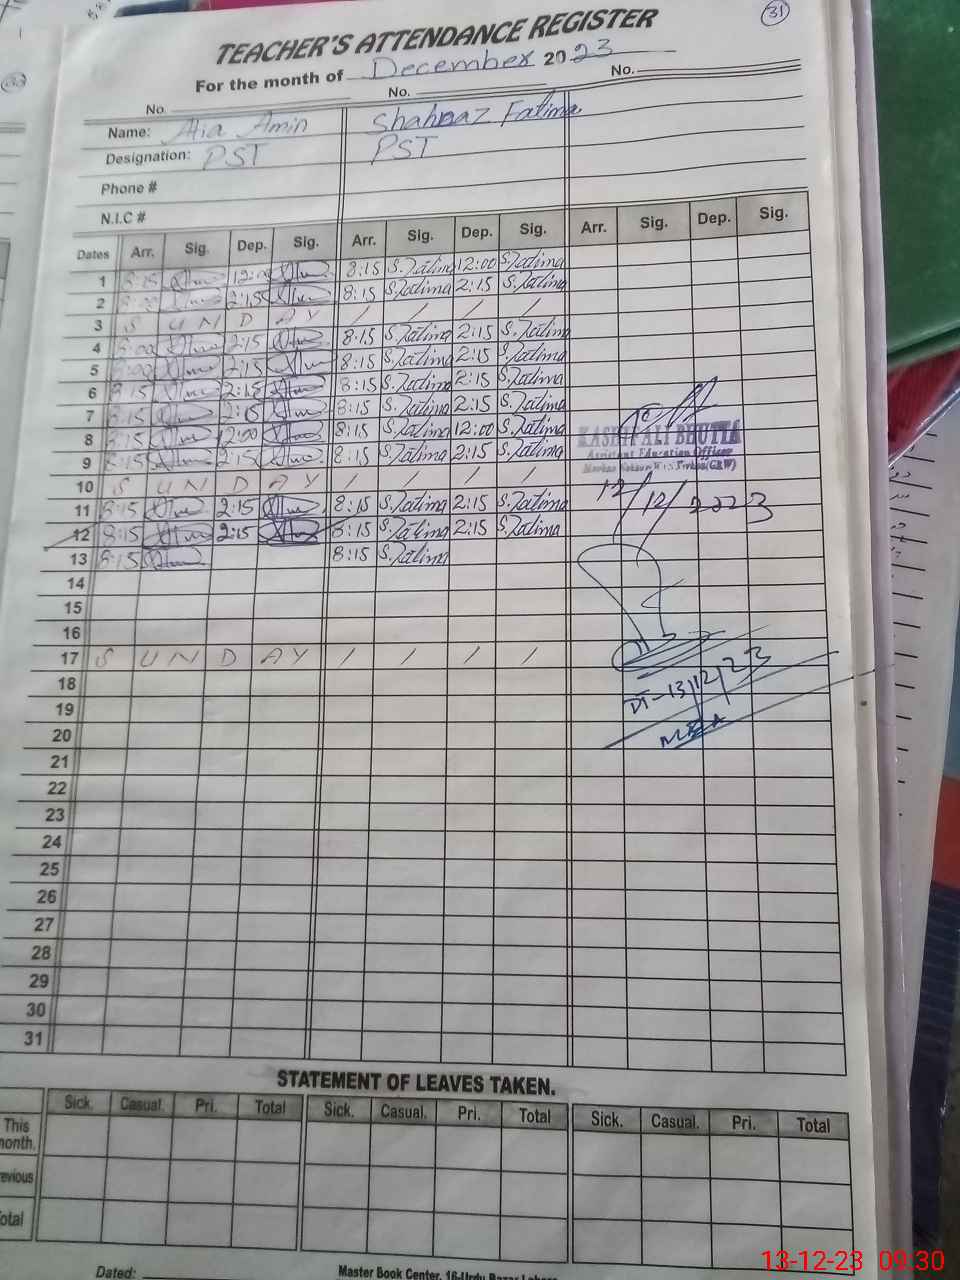 31
TEACHER'S ATTENDANCE REGISTER
For the month of December 2023
No. No. No.
Name: Atia Amin Shahnaz Fatima
Designation: PST PST
Phone #
N.I.C #
Dates Arr. Sig. Dep. Sig. Arr. Sig. Dep. Sig. Arr. Sig. Dep. Sig.
1 8:15 12:00 8:15 S.Fatima 12:00 S.Fatima
2 8:00 2:15 8:15 S.Fatima 2:15 S.Fatima
3 S U N D A Y / / / /
4 8:00 2:15 8:15 S.Fatima 2:15 S.Fatima
5 8:00 2:15 8:15 S.Fatima 2:15 S.Fatima
6 8:15 2:15 8:15 S.Fatima 2:15 S.Fatima
7 8:15 2:15 8:15 S.Fatima 2:15 S.Fatima
8 8:15 12:00 8:15 S.Fatima 12:00 S.Fatima
KASHIF ALI BHUTTA
Assistant Education Officer
9 8:15 2:15 8:15 S.Fatima 2:15 S.Fatima
10 S U N D A Y / / / /
12/12/2023
11 8:15 2:15 8:15 S.Fatima 2:15 S.Fatima
12 8:15 2:15 8:15 S.Fatima 2:15 S.Fatima
13 8:15 8:15 S.Fatima
14
15
16
17 S U N D A Y / / / /
18
DT-13/12/23
19
20
MEA
21
22
23
24
25
26
27
28
29
30
31
STATEMENT OF LEAVES TAKEN.
Sick. Casual. Pri. Total Sick. Casual. Pri. Total Sick. Casual. Pri. Total
This
onth.
evious
otal
Dated: Master Book Center, 16-Urdu Bazar Lahore
13-12-23 09:30